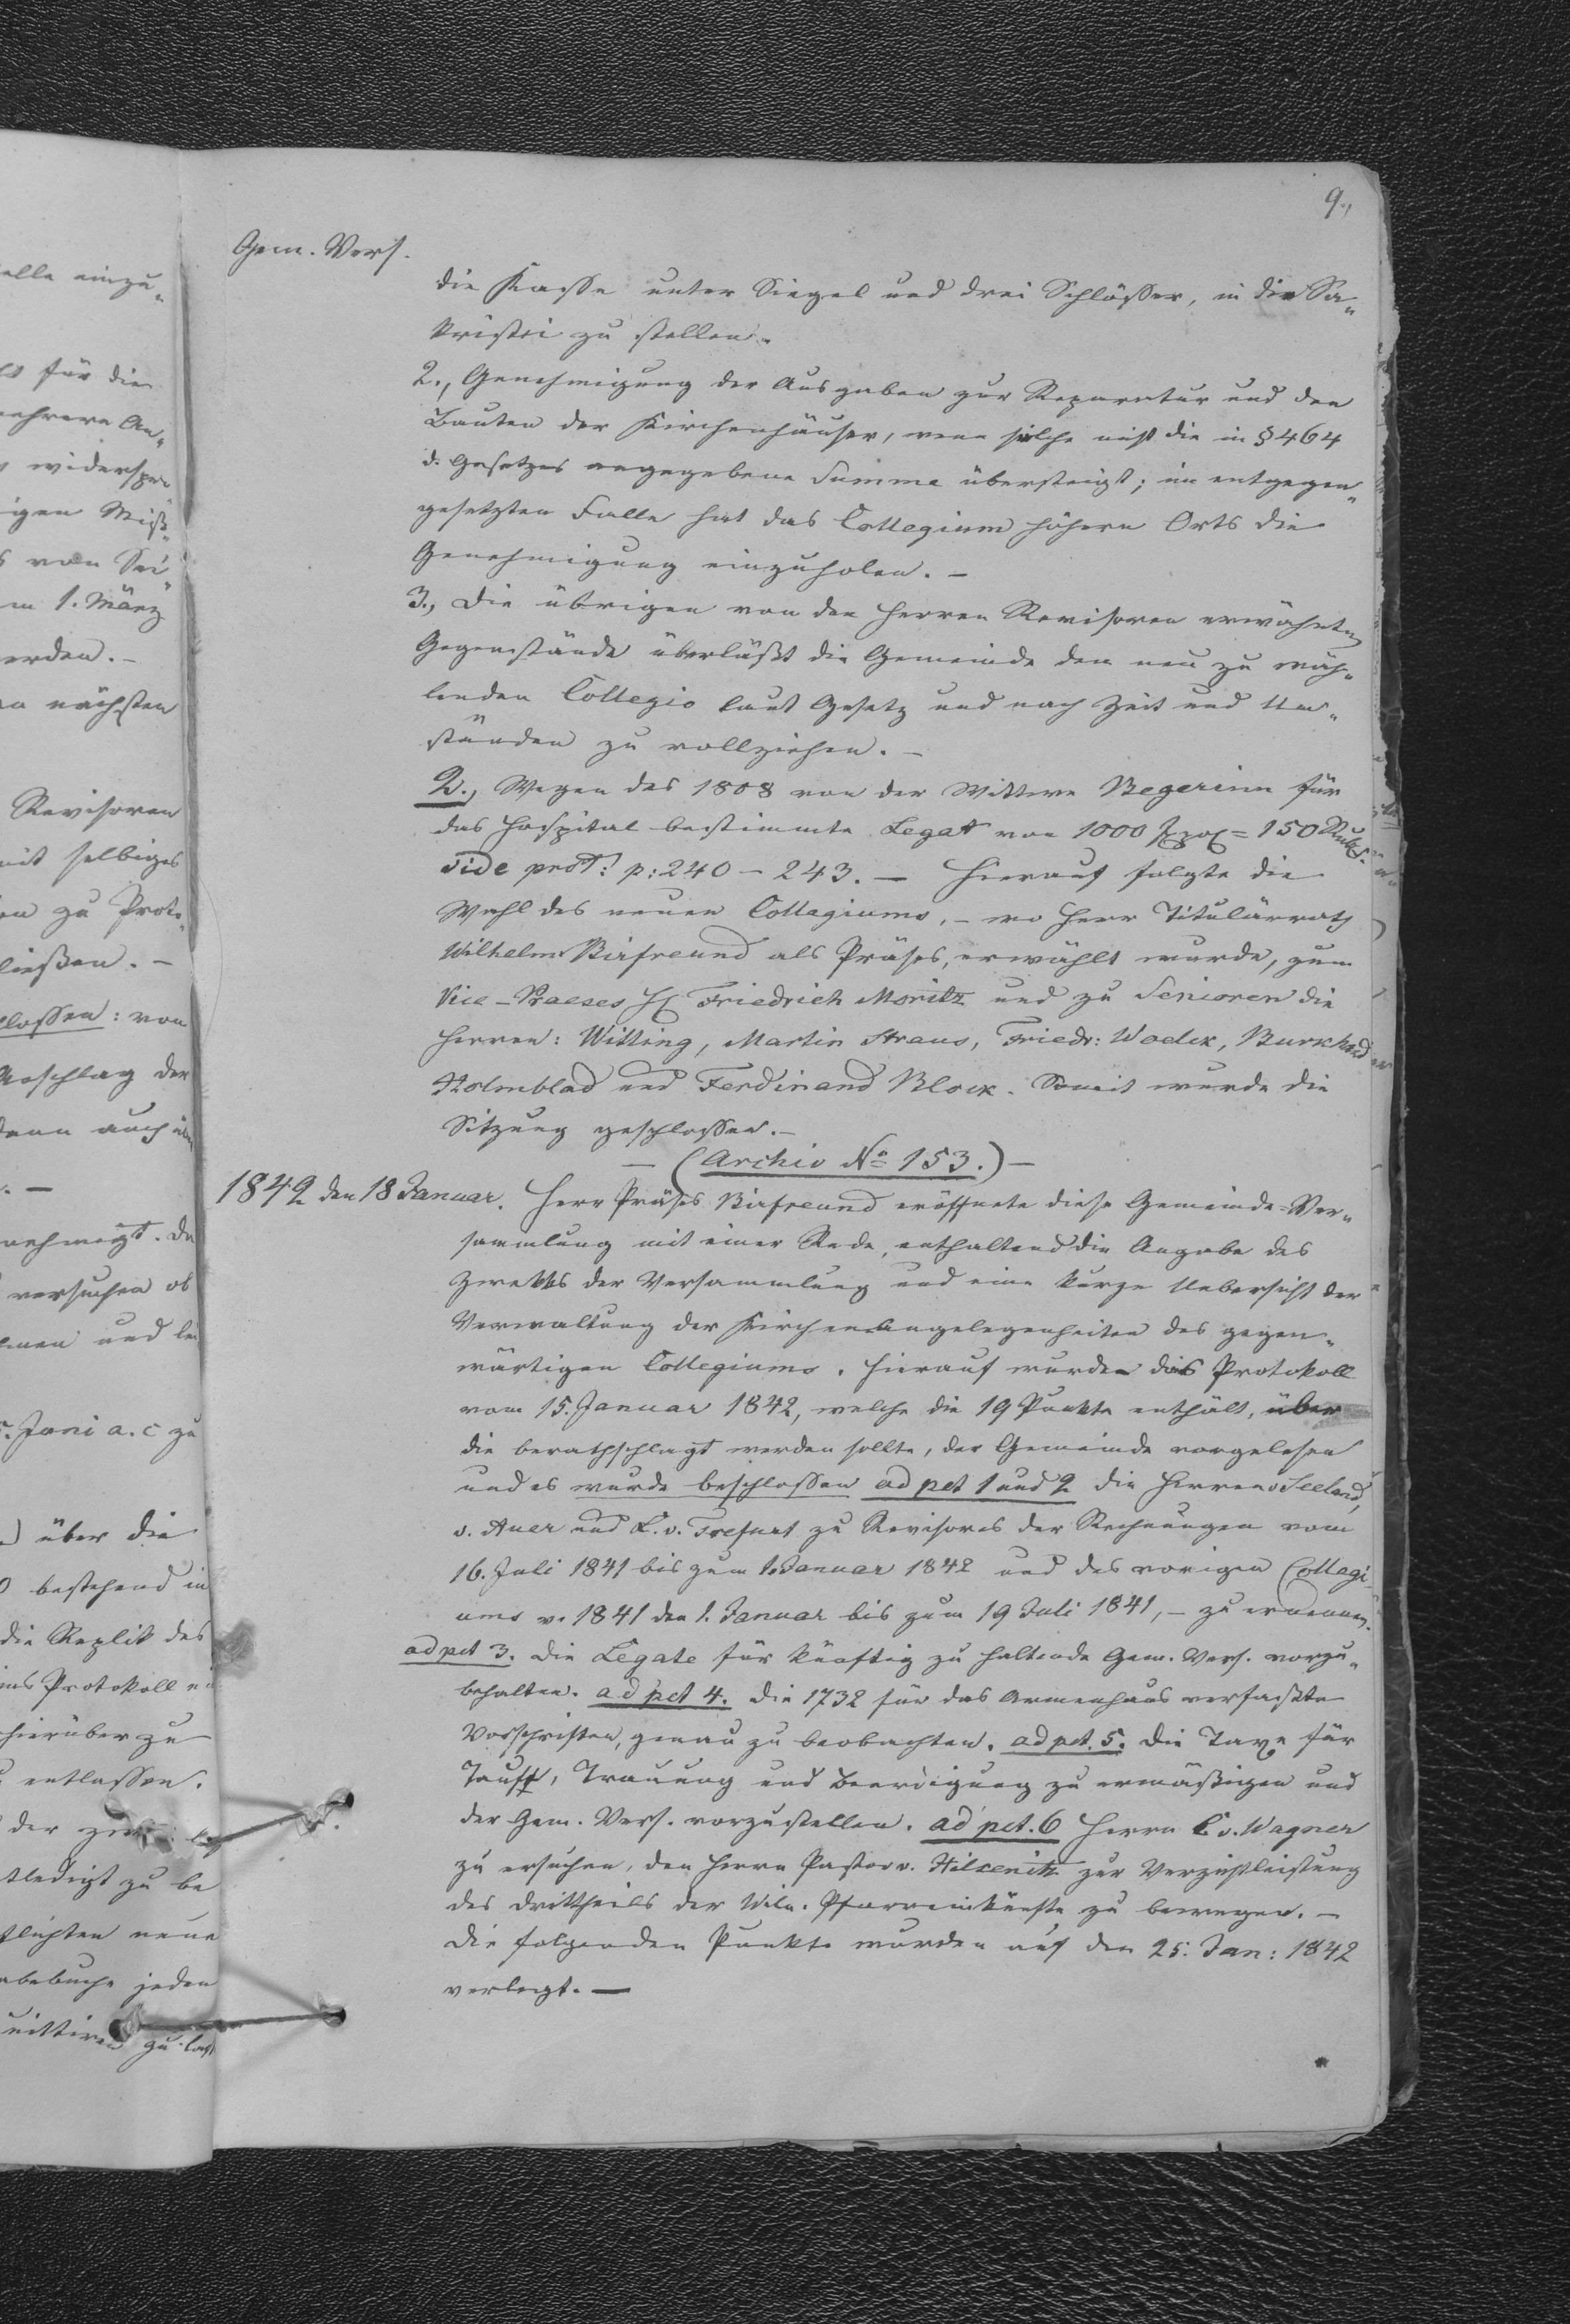 9.,
Gem. Vers.
die Kasse unter Siegel und drei Schlösser, in die Sa„
kristei zu stellen.
2., Genehmigung der Ausgaben zur Reparatur und den
Bauten der Kirchenhäuser, wenn solche nicht die in § 464
d. Gesetzes angegebene Summe übersteigt; im entgegen„
gesetzten Falle hat das Collegium höhern Orts die
Genehmigung einzuholen. –
3., Die übrigen von den Herren Revisoren erwähnten
Gegenstände überläßt die Gemeinde dem neu zu wäh„
lenden Collegio laut Gesetz und nach Zeit und Um„
ständen zu vollziehen. –
2., Wegen des 1808 von der Wittwe Begerinn für
das Hospital bestimmte Legat von 1000 = 150
vide prot: p: 240 – 243. – Hierauf folgte die
Wahl des neuen Collegiums, – wo Herr Titulärrath
Wilhelm Birfreund als Präses, erwählt wurde, zum
Vice-Praeses H Friedrich Moritz und zu Senioren die
Herren: Witting, Martin Straus, Friedr: Woelck, Burkhard
Holmblad und Ferdinand Block. Somit wurde die
Sitzung geschlossen. –
– (Archiv No 153.) –
1842 den 18 Januar. Herr Präses Birfreund eröffnete diese Gemeinde-Ver„
sammlung mit einer Rede, enthaltend die Angabe des
Zwekks der Versammlung und eine kurze Uebersicht der
Verwaltung der Kirchenangelegenheiten des gegen„
wärtigen Collegiums. Hierauf wurden das Protokoll
vom 15. Januar 1842, welche die 19 Punkte enthält, über
die berathschlagt werden sollte, der Gemeinde vorgelesen
und es wurde beschlossen ad pct 1 und 2 die Herren v Seeland,
v. Auer und L. v. Trefurt zu Revisores der Rechnungen vom
16. Juli 1841 bis zum 1. Januar 1842 und des vorigen Collegi„
ums v. 1841 den 1. Januar bis zum 19 Juli 1841, – zu ernennen.
ad pct 3. Die Legate für künftig zu haltende Gem. Vers. vorzu„
behalten. ad pct 4. Die 1732 für das Armenhaus verfaßte
Vorschriften, genau zu beobachten. ad pct. 5. Die Taxe für
Tauff, Trauung und Beerdigung zu ermäßigen und
der Gem. Vers. vorzustellen. ad pct. 6 Herrn C v. Wagner
zu ersuchen, den Herrn Pastor v. zur Verzichtleistung
des Drittheils der Wiln. Pfarreinkünfte zu bewegen. –
Die folgenden Punkte wurden auf den 25. Jan: 1842
verlegt. –